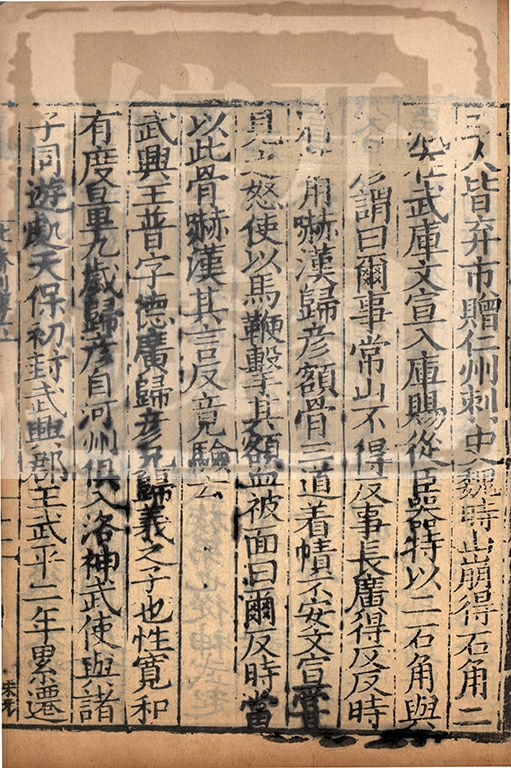 人皆弃市贈仁州刺史魏時山崩得石角二
在武庫文宣入庫賜從臣器特以二石角與
謂曰爾事常山不得反事長廣得反反時
角嚇漢歸彦額骨三道着幘不安文宣嘗
見之怒使以馬鞭擊其額血被面曰爾反時當
以此骨嚇漢其言反竟驗云
武興王普字德廣歸彦兄歸義之子也性寬和
有度量九歲歸彦自河州俱入洛神武使與諸
子同遊處天保初封武興郡王武平二年累遷